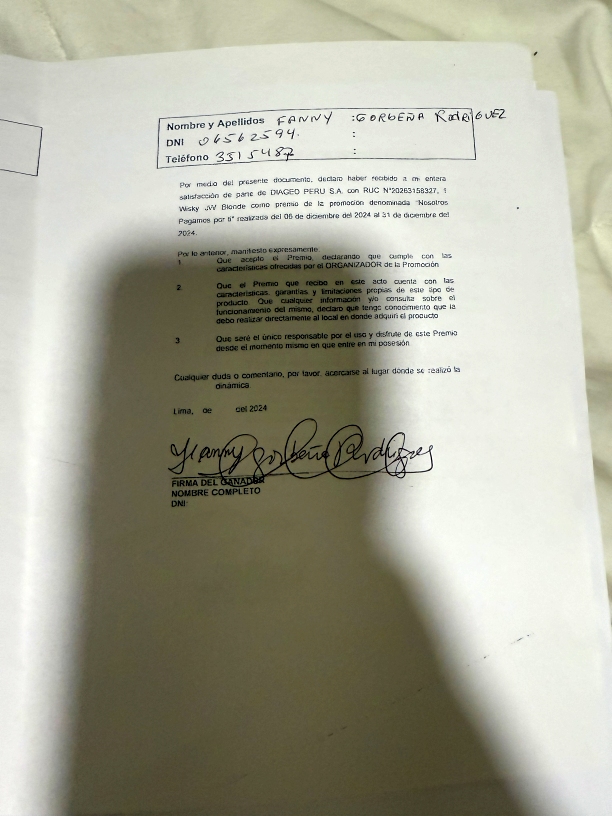 Nombre y Apellidos : FANNY GORBEÑA RodRíGUEZ
DNI 06562594. :
Teléfono 3315487 :
Por medio del presente documento, declaro haber recibido a mi entera
satisfacción de parte de DIAGEO PERU S.A. con RUC N°20263158327, 1
Wisky JW Blonde como premio de la promoción denominada "Nosotros
Pagamos por ti" realizada del 06 de diciembre del 2024 al 31 de diciembre del
2024.
Por lo anterior, manifiesto expresamente:
1. Que acepto el Premio, declarando que cumple con las
características ofrecidas por el ORGANIZADOR de la Promoción
2. Que el Premio que recibo en este acto cuenta con las
características, garantías y limitaciones propias de este tipo de
producto. Que cualquier información y/o consulta sobre el
funcionamiento del mismo, declaro que tengo conocimiento que la
debo realizar directamente al local en donde adquirí el producto
3 Que seré el único responsable por el uso y disfrute de este Premio
desde el momento mismo en que entre en mi posesión
Cualquier duda o comentario, por favor, acercarse al lugar donde se realizó la
dinámica
Lima, de del 2024
Fanny Gorbeña Rodríguez
FIRMA DEL GANADOR
NOMBRE COMPLETO
DNI: